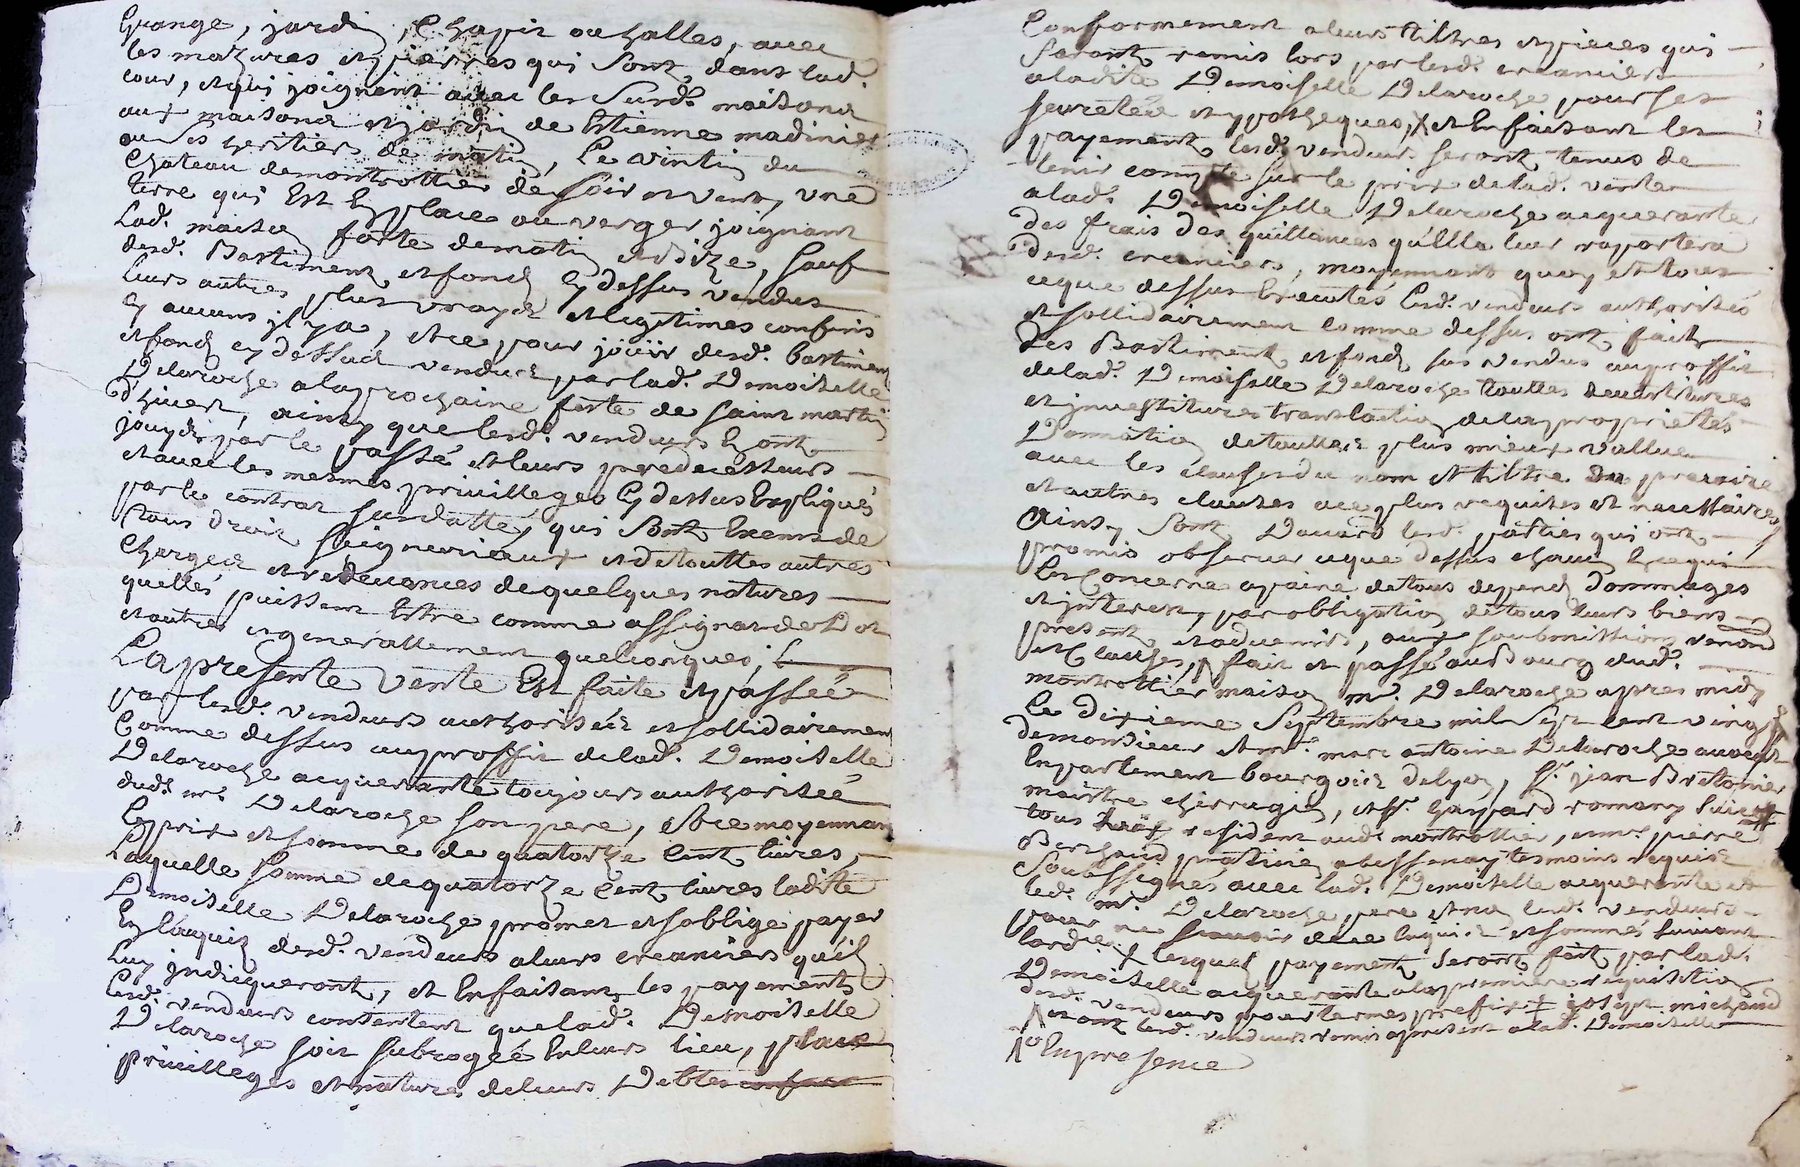 Grange, jardin, Chapit ou halles, avec
les mazures et pierres qui sont dans lad.
cour, et qui joignent avec les susd. maisons
aux maisons et jardin de Estienne madinier
ou ses heritiers de matin, Le vintin du
Chateau demontrottier de soir et vent, une
terre qui Est En place ou verger joignant
Lad. maison forte dematin et bize, sauf
desd. Bastiment et fond Cy dessus vendus
leurs autres plus vrayes et legitimes confins
sy aucuns jl y a, et ce pour joüir desd. bastiment
et fond cy dessus vendus par lad. Demoiselle
Delaroche a la prochaine feste de saint martin
d'hiuert, ainsy que lesd. vendeurs En ont
jouy par le passé et leurs predecesseurs
et auec les mesmes priuilleges Cy dessus Expliqués
par le contrat susdatté, qui sont Exempts de
tous droit seigneuriaux et de touttes autres
Charges et redeuances de quelques natures
quelles puissent Estre comme assignar de Dot
et autres et generallement quelconques;
La presente Vente Est faite et passée
par lesd. vendeurs authorisées et sollidairement
Comme dessus au proffit de lad. Demoiselle
Delaroche acquerante toujours authorisée
dud. mr. Delaroche son pere, et ce moyennant
Le prix et somme de quatorze Cent liures,
Laquelle somme de quatorze Cent liures ladite
Demoiselle Delaroche promet et soblige payer
En lacquit desd. vendeurs a leurs creanciers qu'ils
Luy jndiqueront, et En faisant les payements
Lesd. vendeurs consentent que lad. Demoiselle
Delaroche soit subrogée En leurs lieu, place
priuilleges et nature de leurs Debtes
Conformement a leurs tiltres et pieces qui
seront remis lors par lesd. creanciers
a ladite Demoiselle Delaroche pour ses
seuretée et ypotheques, X et En faisant les
payements lesd. vendeurs seront tenus de
tenir compte sur le prix de lad. vente
a lad. Demoiselle Delaroche acquerante
des frais des quittances qu'Ella leur raportera
desd. creanciers, moyennant quoy et tout
ceque dessus Executés Lesd. vendeurs authorisés
et sollidairement Comme dessus ont fait
Les Bastiment et fond sus vendus au proffit
de lad. Demoiselle Delaroche touttes deuestitures
et jnuestitures translation de la proprietés
Donnation de touttes plus mieux vallue
auec les clauses du nom et tiltre du precaire
et autres clauses acepler requises et necessaires
Ainsy sont Dacord lesd. parties qui ont
promis obseruer ceque dessus chacun En ce qui
Les Concerne a paine de tous depend Dommages
et jnterest, par obligation de tous leurs biens
present et aduenirs, aux soubmissions renon
et Clauses, fait et passé au Bourg dud.
montrottier maison mr. Delaroche apres midy
Le dixieme Septembre mil sept cent vingt
de monsieur et mr. marc antoine Delaroche auocat
En parlement bourgois delyon, sr. jean Bretonier
maistre chirrugien, et sr. Gaspard romany
tous resident aud. montrottier, et mr pierre
praticien a bessenay tesmoins requis
Soussignés auec lad. Demoiselle acquerante et
led. mr. Delaroche pere et non lesd. vendeurs
pour ne scauoir de ce Enquis et sommés suiuant
lordce. X Lesquels payement seront fait par lad.
Demoiselle acquerante a la premiere requisition
desd. vendeurs pour termes prefix joseph michaud
et ont lesd. vendeurs remis a present a lad. Demoiselle
En presence